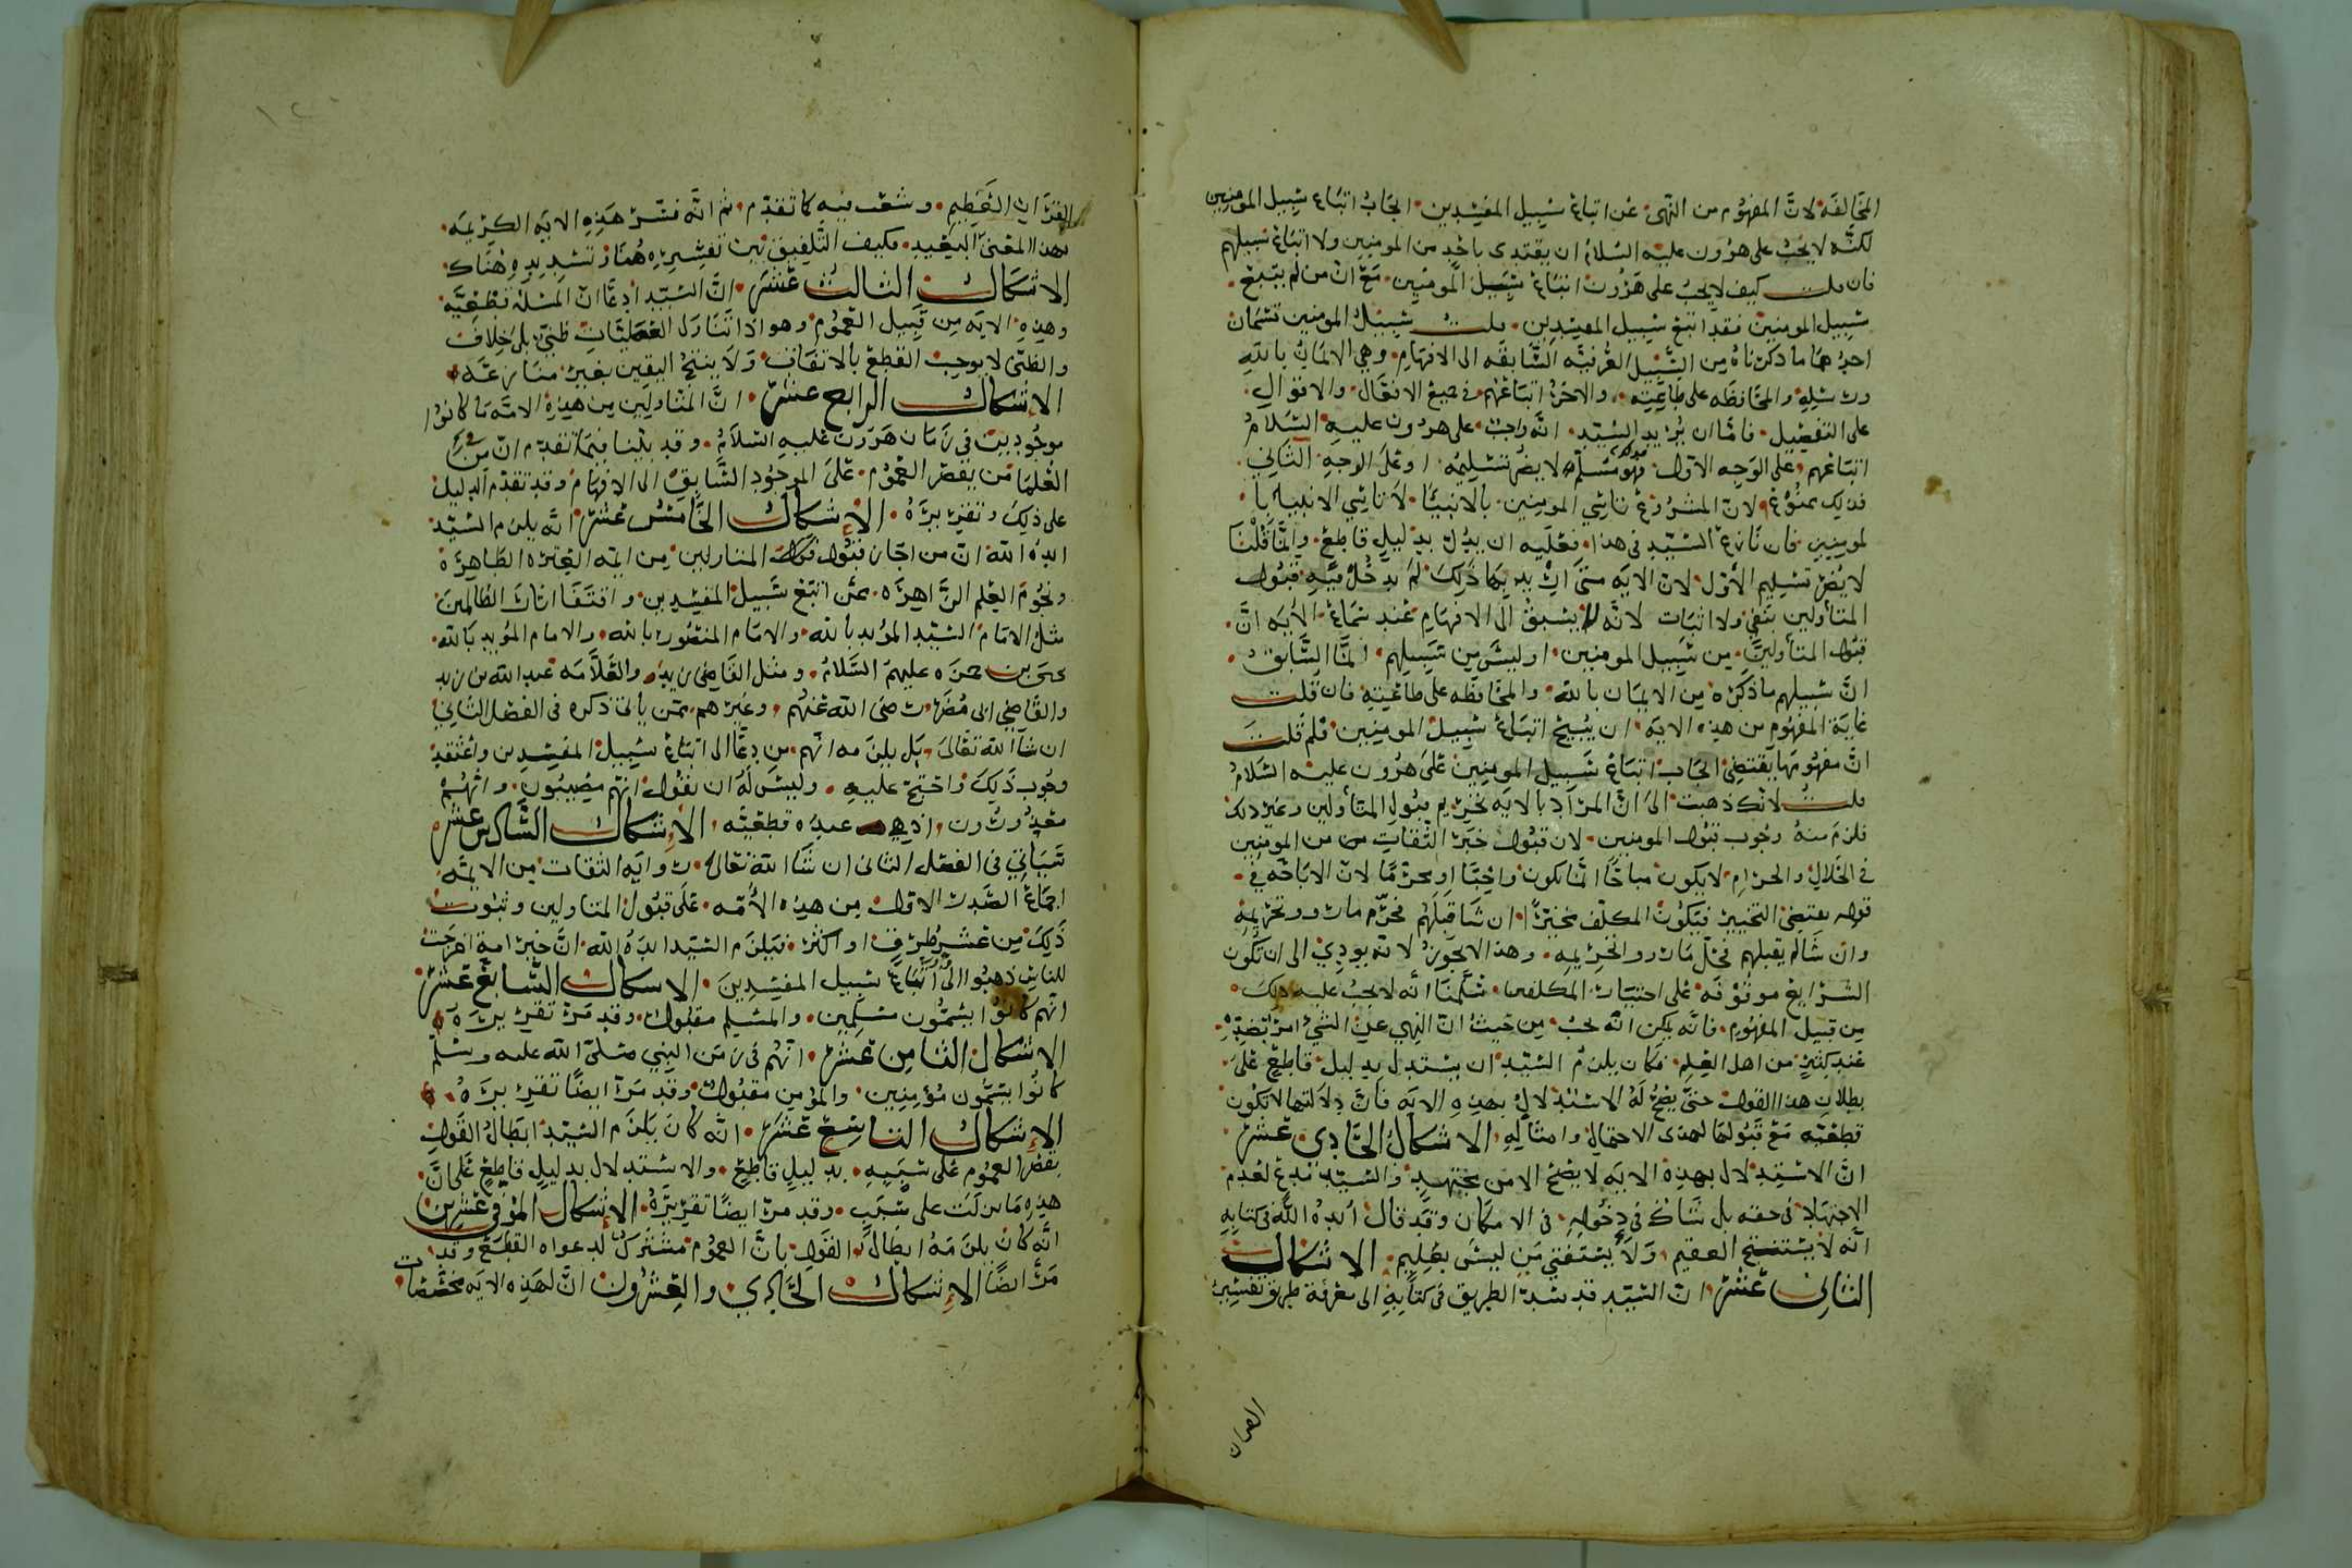 المخالفة لان المفهوم من النهي عن اتباع سبيل المفسدين ايجاب اتباع سبيل المومنين
لكنه لا يجب على هرون عليه السلام ان يقتدى باحد من المومنين ولا اتباع سبيلهم
فان قلت كيف لا يجب على هرون اتباع سبيل المومنين مع ان من لم يتبع
سبيل المومنين فقد اتبع سبيل المفسدين قلت سبيل المومنين قسمان
احدهما ما ذكرناه من السبيل العرفية السابقه الى الافهام وهي الايمان بالله
ورسله والمحافظه على طاعته والاخر اتباعهم في جميع الافعال والاقوال
على التفصيل فاما ان يريد السيد انه واجب على هرون عليه السلام
اتباعهم على الوجه الاول فهو مسلم لا يضر تسليمه او على الوجه الثاني
فذلك ممنوع لان المشروع تاسي المومنين بالانبيا لا تاسي الانبيا با
لمومنين فان نازع السيد في هذا فعليه ان يدل بدليل قاطع وانما قلنا
لا يضر تسليم الاول لان الايه متى اريد بها ذلك لم يدخل فيه قبول
المتأولين بنفي ولا اثبات لانه لا يسبق الى الافهام عند سماع الايه ان
قبول المتأولين من سبيل المومنين او ليس من سبيلهم انما السابق
ان سبيلهم ما ذكره من الايمان بالله والمحافظه على طاعته فان قلت
غاية المفهوم من هذه الايه ان يبيح اتباع سبيل المومنين فلم قلت
ان مفهومها يقتضي ايجاب اتباع سبيل المومنين على هرون عليه السلام
قلت لانك ذهبت الى ان المراد بالايه تحريم قبول المتأولين وغير ذلك
فلزم منه وجوب قبول المومنين لان قبول خبر الثقات من المومنين
في الحلال والحرام لا يكون مباحا انما يكون واجبا او محرما لان الاباحه في
قوله يقتضي التخيير فيكون المكلف مخيرا ان شا قبلهم فحرم مارووتحريمه
وان شا لم يقبلهم فحل مارووا تحريمه وهذا لا يجوز لانه يودي الى ان تكون
الشرايع موقوفه على اختيار المكلفين سلمنا انه لا يجب عليه ذلك
من قبيل المفهوم فانه يمكن انه يجب من حيث ان النهي عن الشي امر بضده
عند كثير من اهل العلم فكان يلزم السيد ان يستدل بدليل قاطع على
بطلان هذا القول حتى يصح له الاستدلال بهذه الايه فان دلالتها لا تكون
قطعيه مع قبولها لهذا الاحتمال وامثاله الاشكال الحادي عشر
ان الاستدلال بهذه الايه لا يصح الا من مجتهد والسيد مدع لعدم
الاجتهاد في حقه بل شاك في دخوله في الامكان وقد قال ايده الله في كتابه
انه لا يستنتج العقيم ولا يستفتي من ليس بعليم الاشكال
الثاني عشر ان السيد قد سد الطريق في كتابه الى معرفة طريق تفسير
القران
القران العظيم وشعب فيه كما تقدم ثم انه فسر هذه الايه الكريمه
بهذا المعنى البعيد فكيف التلفيق بين تفسيره هنا وتشديده هناك
الاشكال الثالث عشر ان السيد ادعا ان المسله قطعيه
وهذه الايه من قبيل العموم وهو اذا تناول العمليات ظني بلا خلاف
والظني لا يوجب القطع بالاتفاق ولا ينتج اليقين بغير منازعه
الاشكال الرابع عشر ان المتاولين من هذه الامه ما كانوا
موجودين في زمان هرون عليه السلام وقد بينا فيما تقدم ان من
العلما من يقصر العموم على الموجود السابق الى الافهام وقد تقدم الدليل
على ذلك وتقريره الاشكال الخامس عشر انه يلزم السيد
ايده الله ان من اجاز قبول المتاولين من ايمه العتره الطاهره
ونجوم العلم الزاهره ممن اتبع سبيل المفسدين واقتفا اثار الظالمين
مثل الامام السيد المويد بالله والامام المنصور بالله والامام المويد بالله
يحيى بن حمزه عليهم السلام ومثل القاضي زيد والعلامه عبد الله بن زيد
والقاضي ابي مضر رضى الله عنهم وغيرهم ممن ياتي ذكره في الفصل الثاني
ان شا الله تعالى بل يلزمه انهم من دعا الى اتباع سبيل المفسدين واعتقد
وجوب ذلك واحتج عليه وليس له ان يقول انهم مصيبون وانهم
معذورون اذ هي عنده قطعيه الاشكال السادس عشر
سياتي في الفصل الثاني ان شا الله تعالى روايه الثقات من الايمه
اجماع الصدر الاول من هذه الامه على قبول المتاولين وثبوت
ذلك من عشر طرق او اكثر فيلزم السيد ايده الله ان خير امة اخرجت
للناس ذهبوا الى اتباع سبيل المفسدين الاشكال السابع عشر
انهم كانوا يسمون مسلمين والمسلم مقبول وقد مر تقريره
الاشكال الثامن عشر انهم في زمن النبي صلى الله عليه وسلم
كانوا يسمون مؤمنين والمؤمن مقبول وقد مر ايضا تقريره
الاشكال التاسع عشر انه كان يلزم السيد ابطال القول
بقصر العموم على سببه بدليل قاطع والاستدلال بدليل قاطع على ان
هذه ما نزلت على سبب وقد مر ايضا تقريره الاشكال الموفي عشرين
انه كان يلزمه ابطال القول بان العموم مشترك لدعواه القطع وقد
مر ايضا الاشكال الحادي والعشرون ان لهذه الايه مخصصات